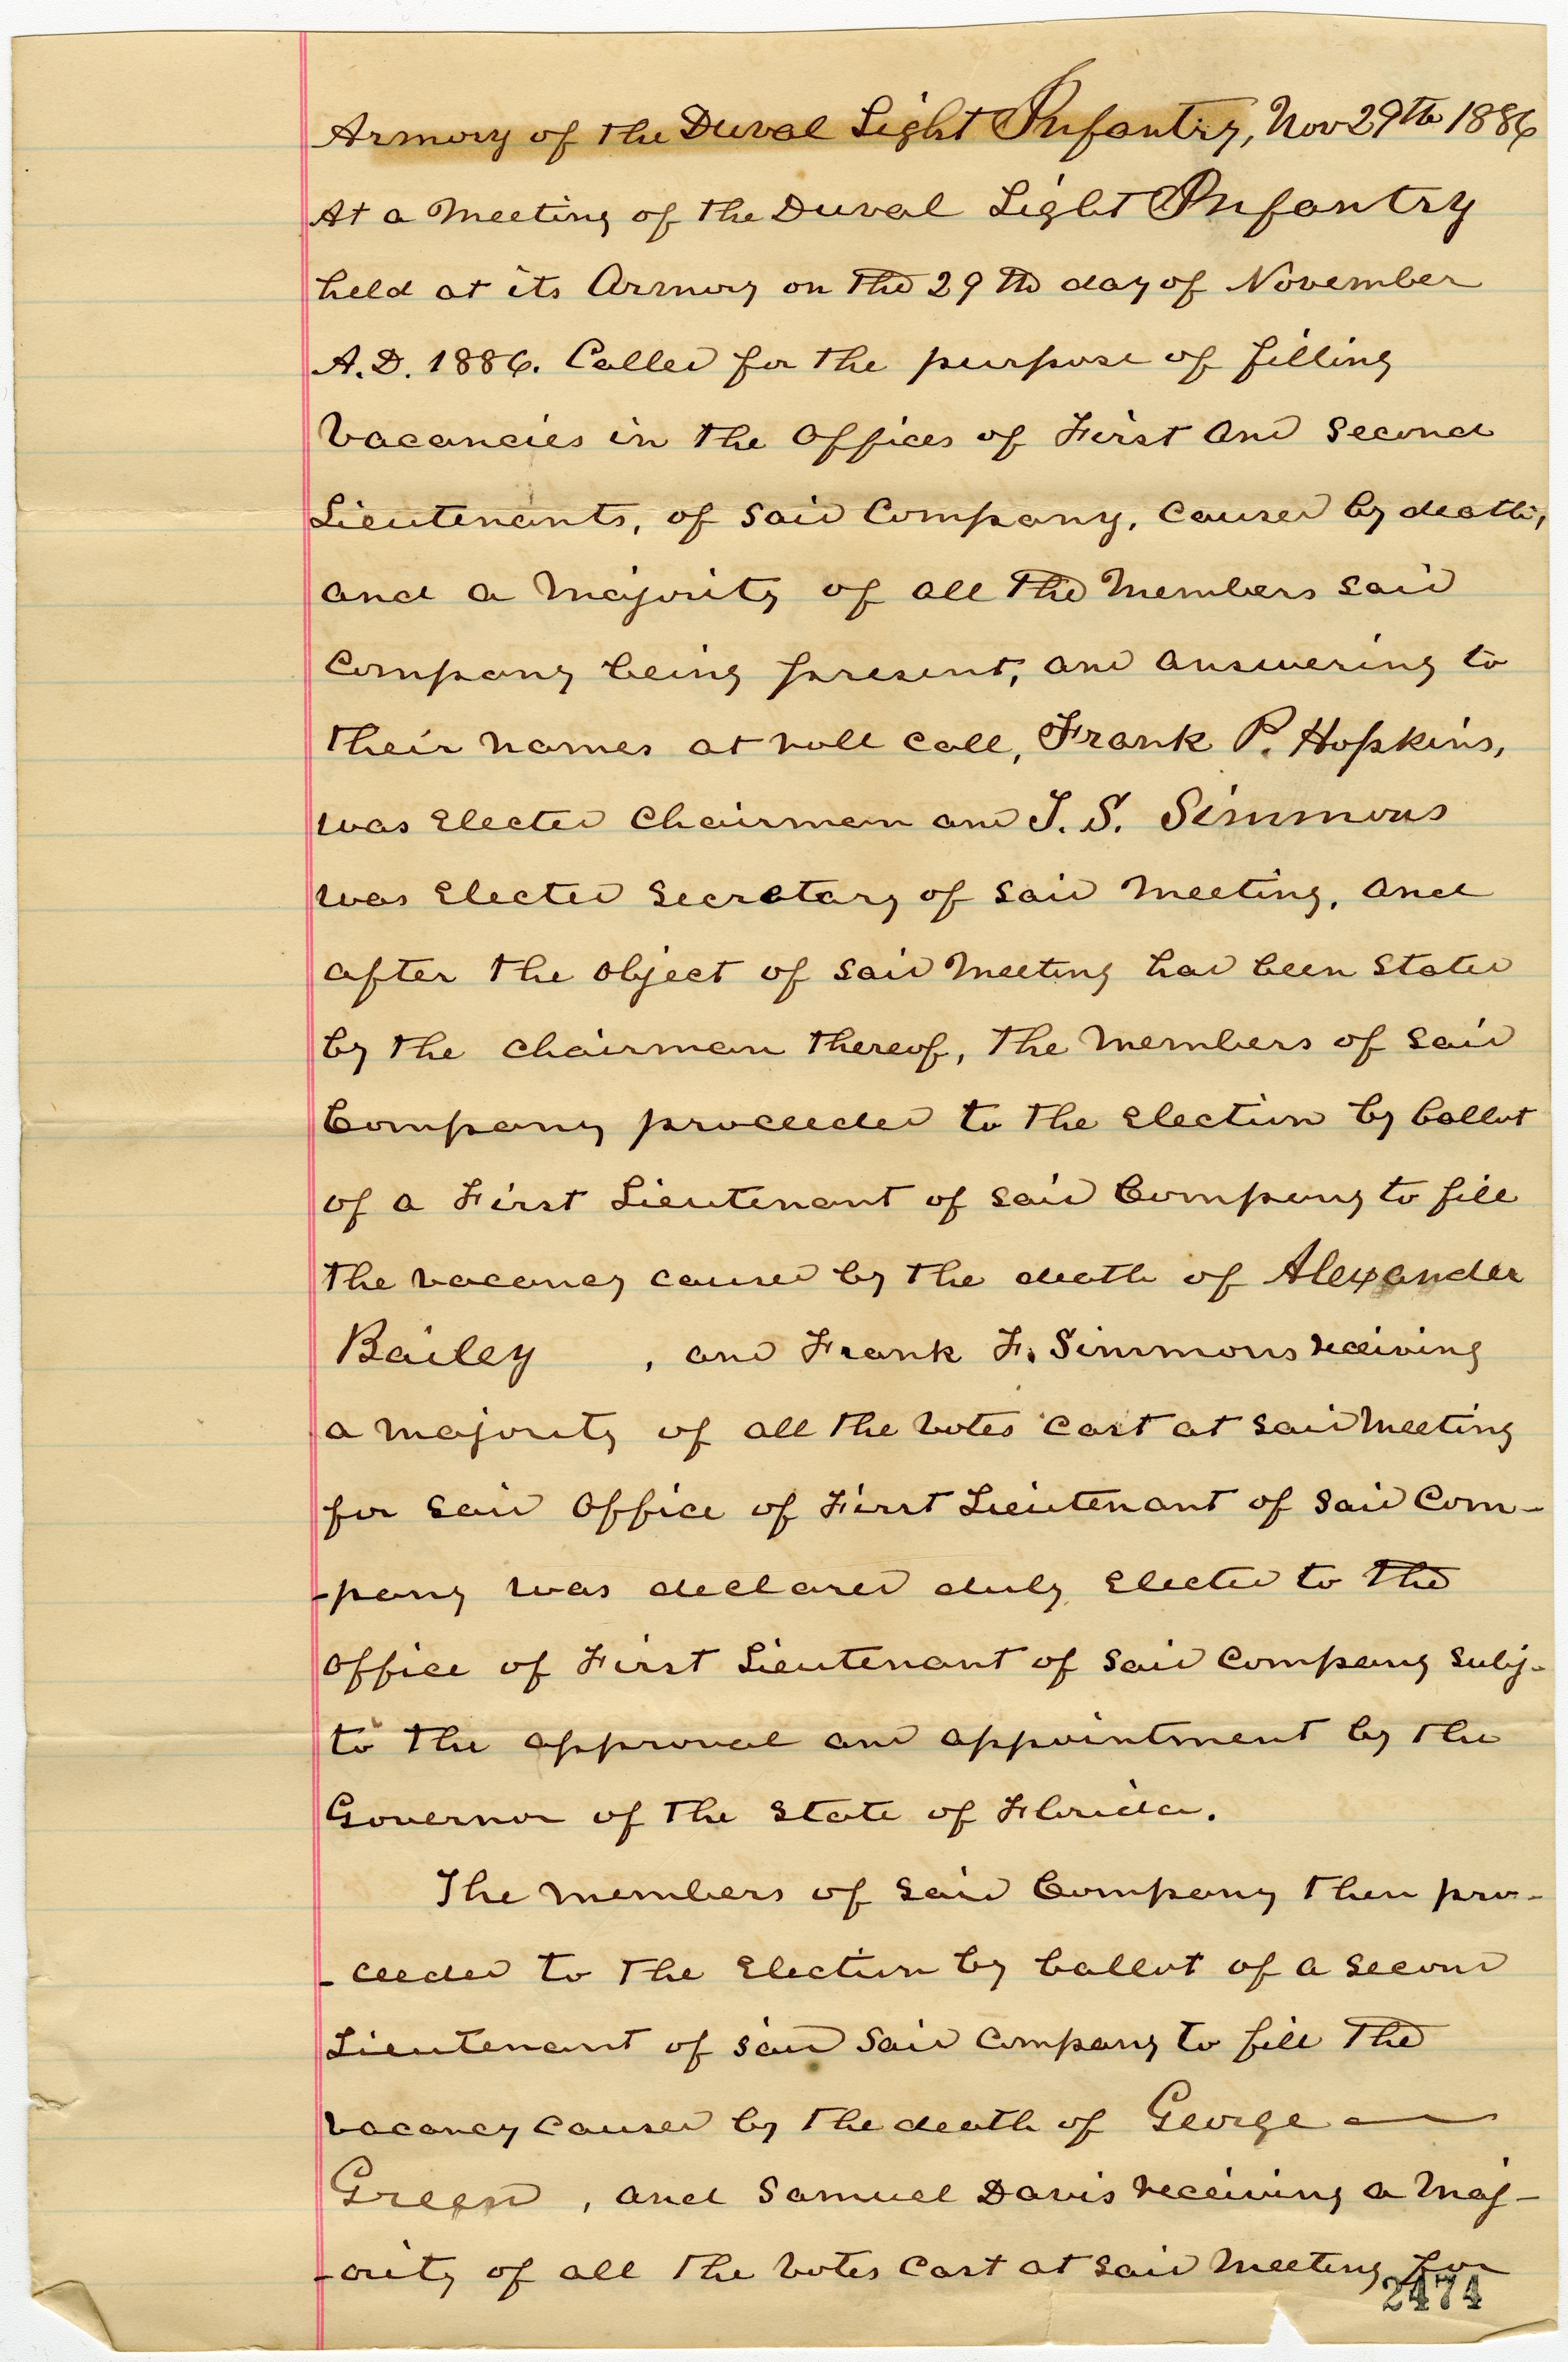 Armory of the Duval Light Infantry, Nov 29th 1886
At a Meeting of the Duval Light Infantry
held at its Armory on the 29th day of November
A.D. 1886. Called for the purpose of filling
Vacancies in the Offices of First and Second
Lieutenants, of said Company, caused by death,
and a Majority of all the Members said
Company being present, and answering to
their names at roll call, Frank P. Hopkins,
was Elected Chairman and J. S. Simmons
was Elected Secretary of said Meeting, and
after the object of said Meeting had been stated
by the Chairman thereof, the Members of said
Company proceeded to the Election by ballot
of a First Lieutenant of said Company to fill
the vacancy caused by the death of Alexander
Bailey , and Frank F. Simmons receiving
a Majority of all the votes cast at said Meeting
for said Office of First Lieutenant of said Com-
-pany was declared duly Elected to the
Office of First Lieutenant of said Company Subj-
to the approval and appointment by the
Governor of the State of Florida.
The Members of said Company then pro-
-ceeded to the Election by ballot of a Second
Lieutenant of said said Company to fill the
vacancy caused by the death of George —
Green , and Samuel Davis receiving a Maj-
-ority of all the votes cast at said Meeting for
2474